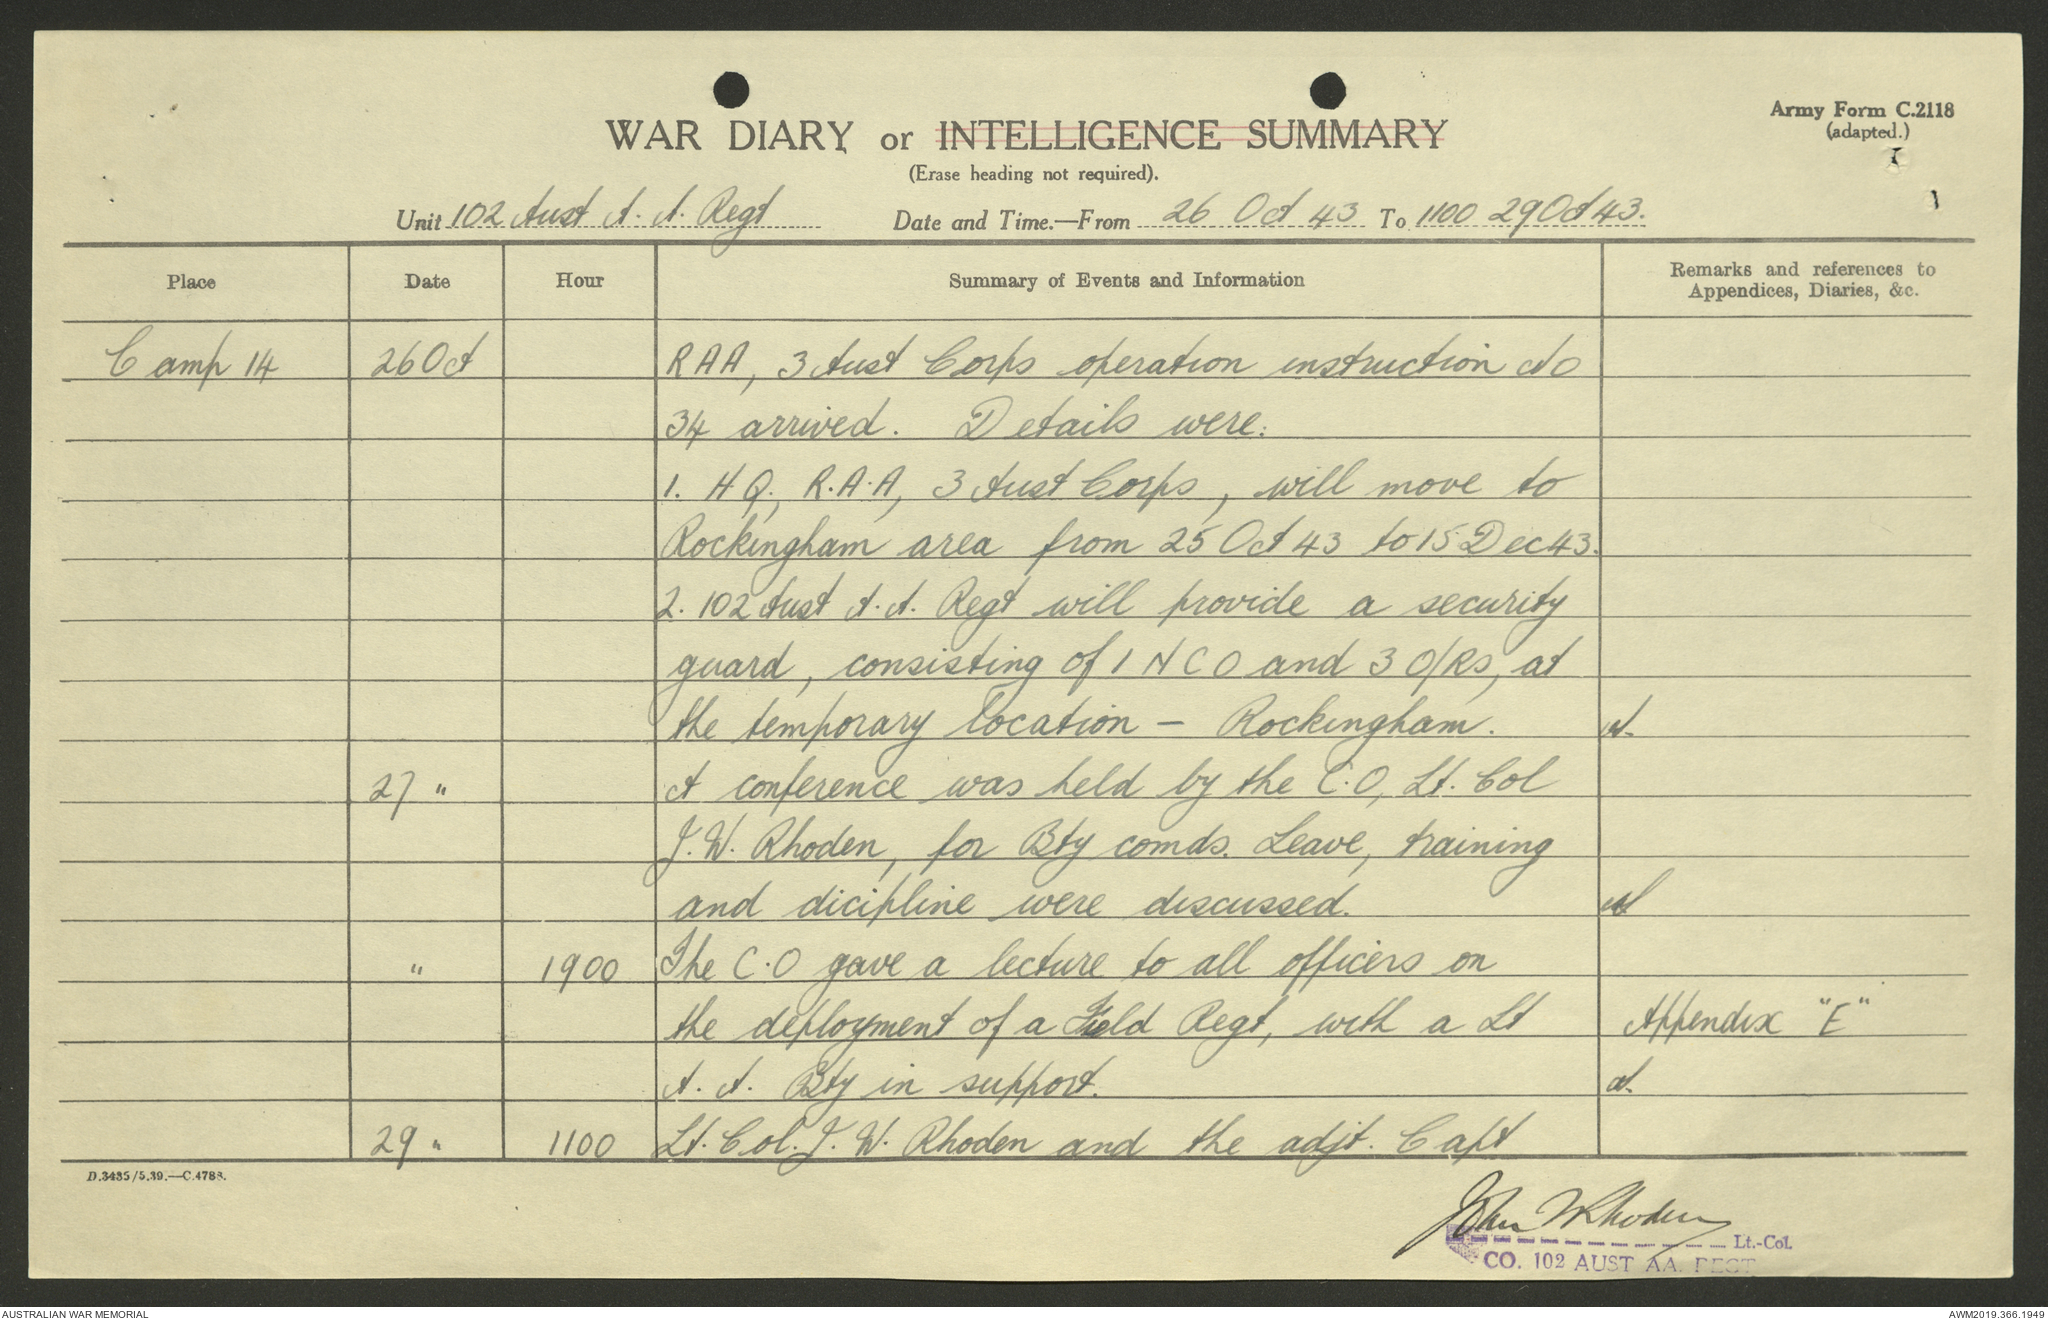 Army Form C.2118
(adapted.)
WAR DIARY or INTELLIGENCE SUMMARY
(Erase heading not required).
Unit 102 Aust A. A. Regt Date and Time.—From 26 Oct 43 To 1100 29 Oct 43.
Place Date Hour Summary of Events and Information Remarks and references to
Appendices, Diaries, &c.
Camp 14 26 Oct RAA, 3 Aust Corps operation instruction No
34 arrived. Details were:
1. HQ, R.A.A, 3 Aust Corps, will move to
Rockingham area from 25 Oct 43 to 15 Dec 43.
2. 102 Aust A.A. Regt will provide a security
guard, consisting of 1 NCO and 3 O/Rs, at
the temporary location – Rockingham.
27 " A conference was held by the C.O, Lt. Col
J.W. Rhoden, for Bty comds. Leave, training
and dicipline were discussed.
" 1900 The C.O gave a lecture to all officers on
the deployment of a Field Regt, with a Lt Appendix "E"
A. A. Bty in support.
29 " 1100 Lt. Col. J. W. Rhoden and the adjt. Capt
D.3435/5.39.—C.4788.
John W Rhoden
Lt.-Col.
CO. 102 AUST AA. REGT
AUSTRALIAN WAR MEMORIAL AWM2019.366.1949